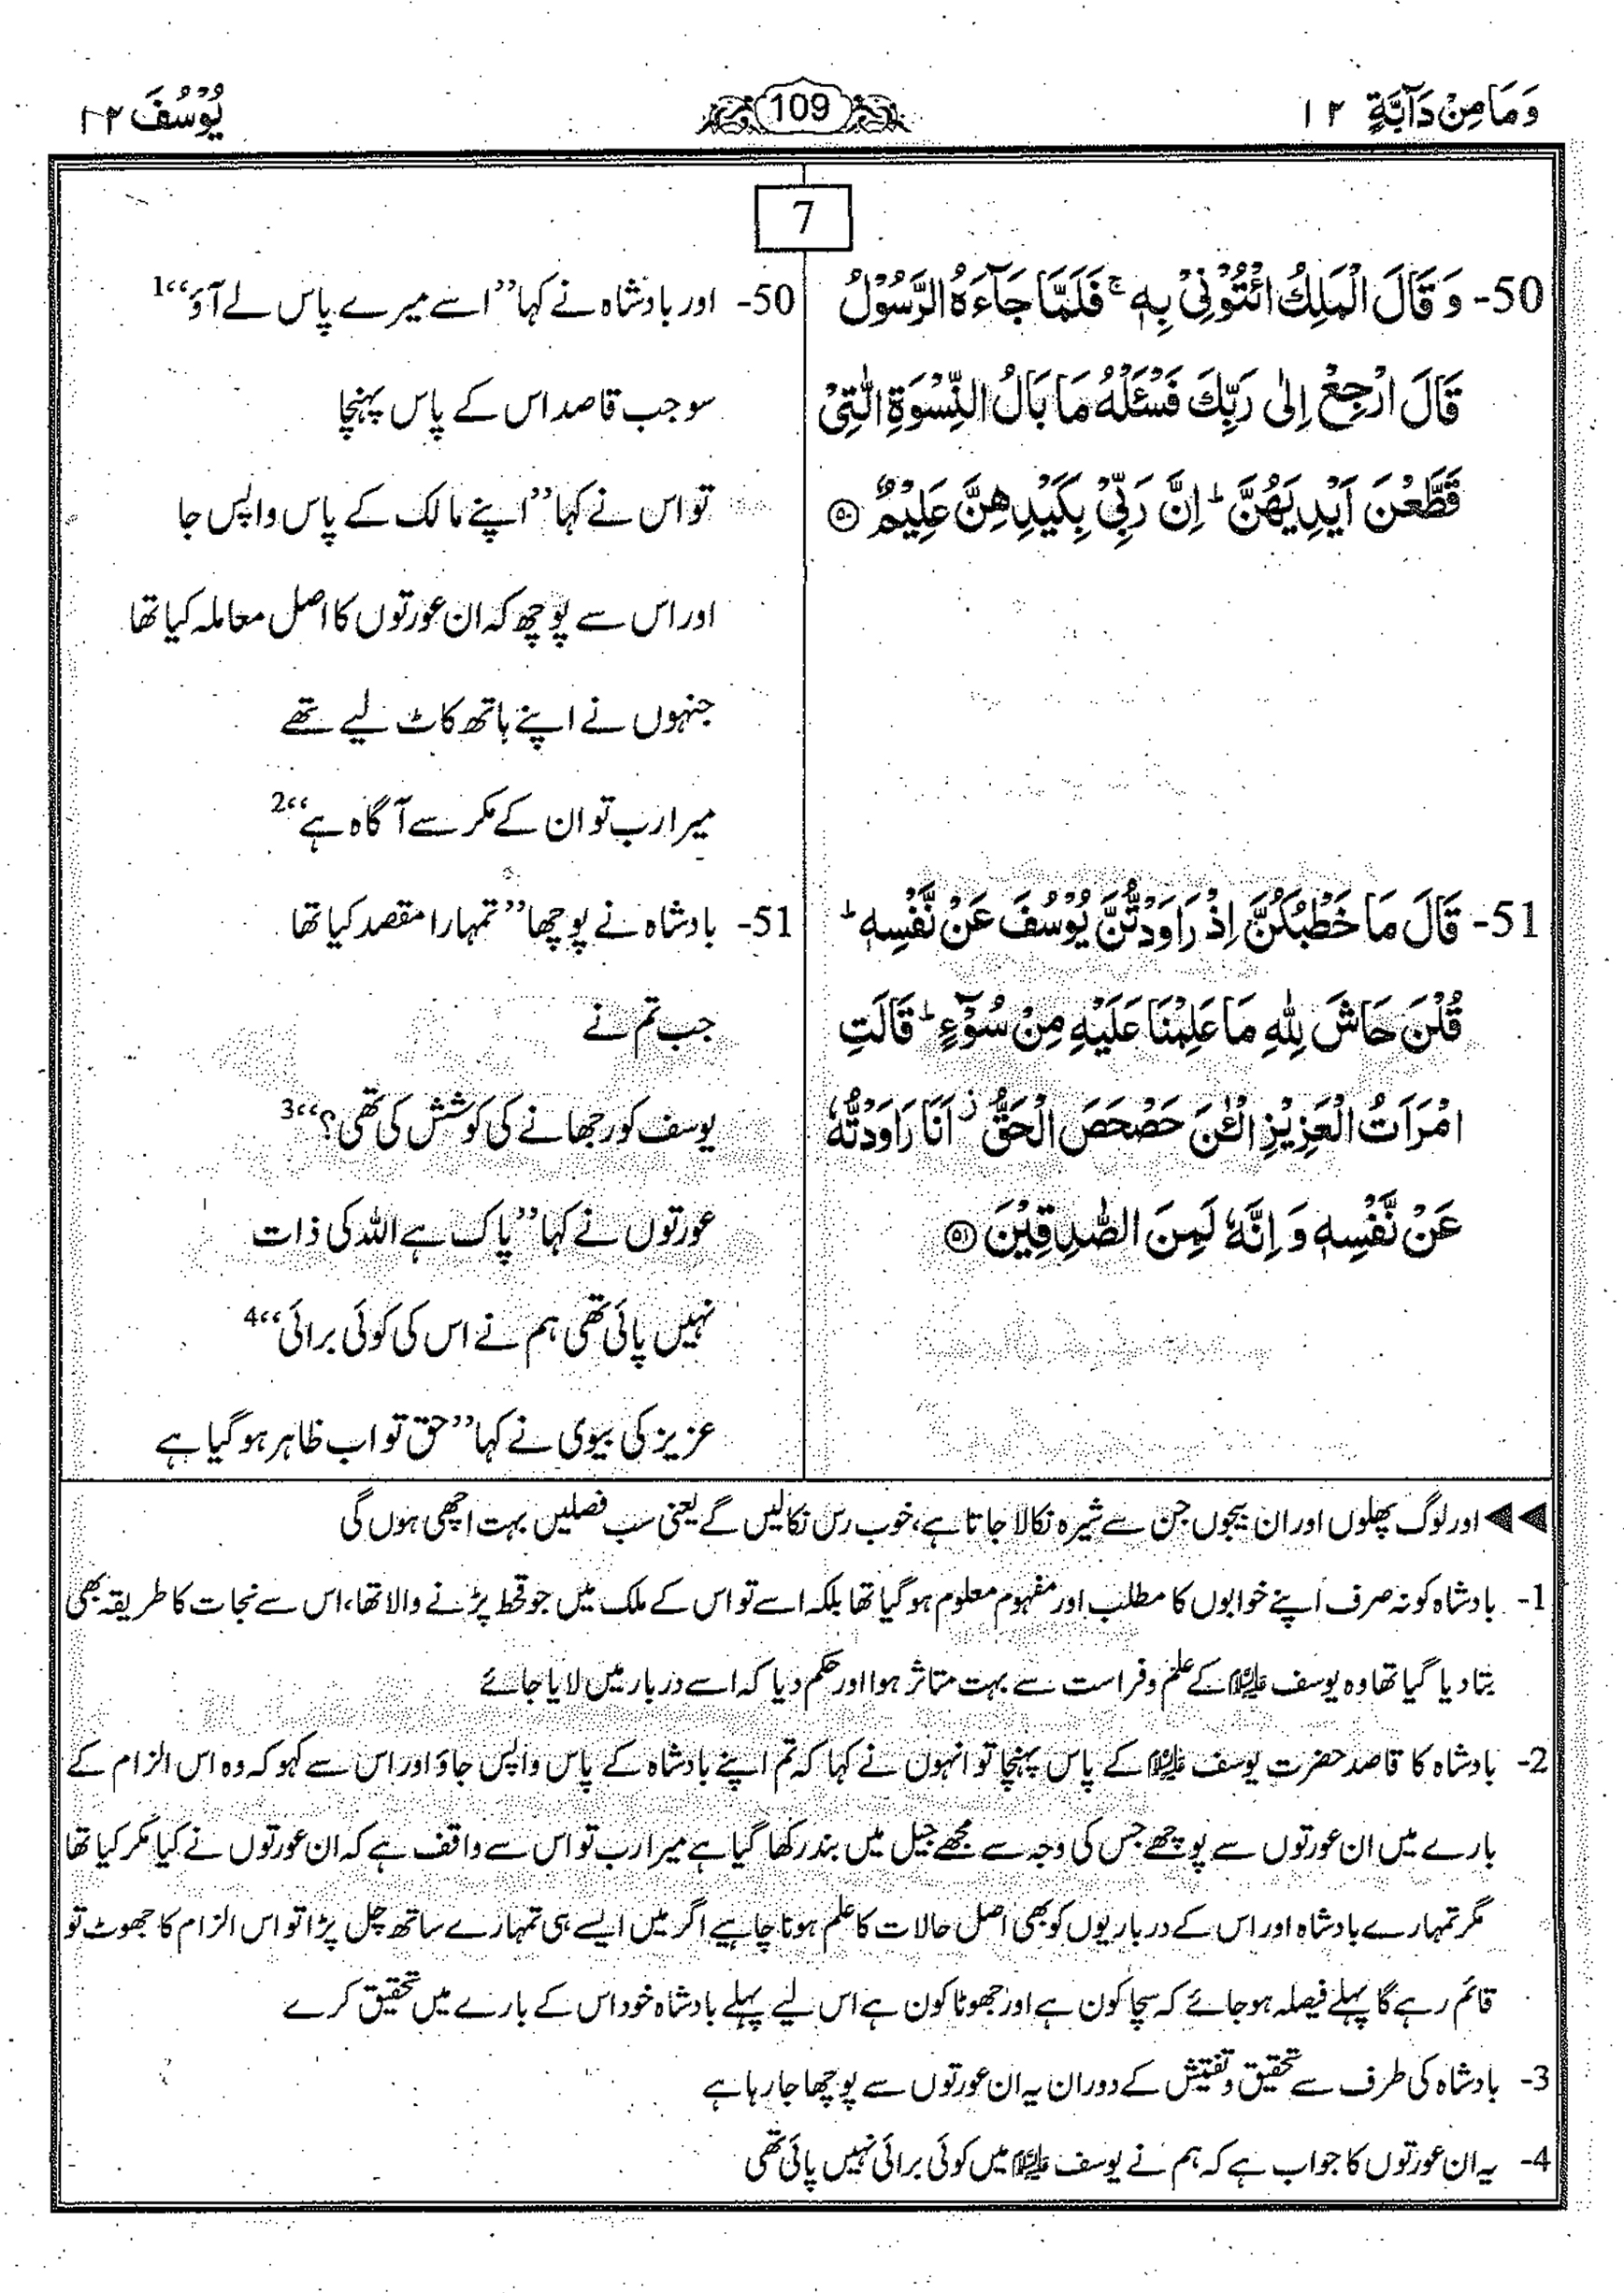 وَمَا مِنْ دَآبَّةٍ ۱۲
109
يُوْسُفَ ۱۲
7
50- وَ قَالَ الْمَلِكُ ائْتُوْنِيْ بِهٖ ۚ فَلَمَّا جَآءَهُ الرَّسُوْلُ
قَالَ ارْجِعْ اِلٰى رَبِّكَ فَسْـَٔلْهُ مَا بَالُ النِّسْوَةِ الّٰتِيْ
قَطَّعْنَ اَيْدِيَهُنَّ ؕ اِنَّ رَبِّيْ بِكَيْدِهِنَّ عَلِيْمٌ ۵۰
51- قَالَ مَا خَطْبُكُنَّ اِذْ رَاوَدْتُّنَّ يُوْسُفَ عَنْ نَّفْسِهٖ ؕ
قُلْنَ حَاشَ لِلّٰهِ مَا عَلِمْنَا عَلَيْهِ مِنْ سُوْٓءٍ ؕ قَالَتِ
امْرَاَتُ الْعَزِيْزِ الْـٰٔنَ حَصْحَصَ الْحَقُّ ؗ اَنَا رَاوَدْتُّهٗ
عَنْ نَّفْسِهٖ وَ اِنَّهٗ لَمِنَ الصّٰدِقِيْنَ ۵۱
50- اور بادشاہ نے کہا ”اسے میرے پاس لے آؤ“1
سو جب قاصد اس کے پاس پہنچا
تو اس نے کہا ”اپنے مالک کے پاس واپس جا
اور اس سے پوچھ کہ ان عورتوں کا اصل معاملہ کیا تھا
جنہوں نے اپنے ہاتھ کاٹ لیے تھے
میرا رب تو ان کے مکر سے آگاہ ہے“2
51- بادشاہ نے پوچھا ”تمہارا مقصد کیا تھا
جب تم نے
یوسف کو رجھانے کی کوشش کی تھی؟“3
عورتوں نے کہا ”پاک ہے اللہ کی ذات
نہیں پائی تھی ہم نے اس کی کوئی برائی“4
عزیز کی بیوی نے کہا ”حق تو اب ظاہر ہو گیا ہے
◄◄ اور لوگ پھلوں اور ان بیجوں جن سے شیرہ نکالا جاتا ہے، خوب رس نکالیں گے یعنی سب فصلیں بہت اچھی ہوں گی
1- بادشاہ کو نہ صرف اپنے خوابوں کا مطلب اور مفہوم معلوم ہو گیا تھا بلکہ اسے تو اس کے ملک میں جو قحط پڑنے والا تھا، اس سے نجات کا طریقہ بھی
بتا دیا گیا تھا وہ یوسف علیہ السلام کے علم و فراست سے بہت متاثر ہوا اور حکم دیا کہ اسے دربار میں لایا جائے
2- بادشاہ کا قاصد حضرت یوسف علیہ السلام کے پاس پہنچا تو انہوں نے کہا کہ تم اپنے بادشاہ کے پاس واپس جاؤ اور اس سے کہو کہ وہ اس الزام کے
بارے میں ان عورتوں سے پوچھے جس کی وجہ سے مجھے جیل میں بند رکھا گیا ہے میرا رب تو اس سے واقف ہے کہ ان عورتوں نے کیا مکر کیا تھا
مگر تمہارے بادشاہ اور اس کے درباریوں کو بھی اصل حالات کا علم ہونا چاہیے اگر میں ایسے ہی تمہارے ساتھ چل پڑا تو اس الزام کا جھوٹ تو
قائم رہے گا پہلے فیصلہ ہو جائے کہ سچا کون ہے اور جھوٹا کون ہے اس لیے پہلے بادشاہ خود اس کے بارے میں تحقیق کرے
3- بادشاہ کی طرف سے تحقیق و تفتیش کے دوران یہ ان عورتوں سے پوچھا جا رہا ہے
4- یہ ان عورتوں کا جواب ہے کہ ہم نے یوسف علیہ السلام میں کوئی برائی نہیں پائی تھی